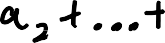 a₂ + ... +